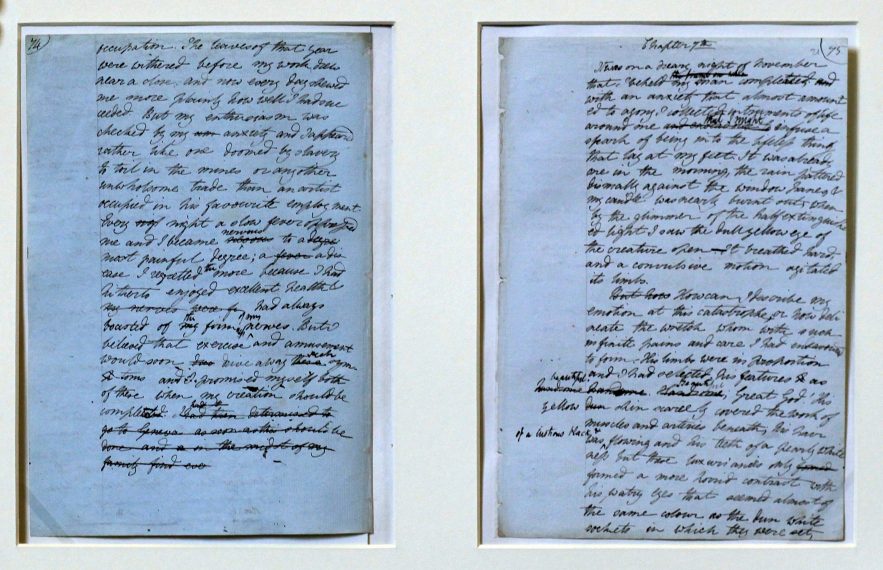 74)
occupation. The leaves of that year
were withered before my work drew
near a close and now every day shewed
me more plainly how well I had suc
ceeded But my enthusiasm was
checked by my anxiety and I appeared
rather like one doomed by slavery
to toil in the mines or any other
unwholsome trade than an artist
occupied in his favourite employment.
Every night a slow fever oppressed
nervous
me and I became to a
most painful degree; a fever a dis
ease I regretted the more because I had
hitherto enjoyed excellent health &
my nerves were fi had always
boasted of the firmness of my nerves. But I
beleived that exercise and amusement
would soon drive away such sym
toms and I promised myself both
of these when my creation should be
compleated. I had then determined to
go to Geneva as soon as this should be
done and in the midst of my
family find ever
(75
Chapter 7th
It was on a dreary night of November
that I beheld my man compleated and
with an anxiety that almost amount
ed to agony I collected instruments of life
that I might
around me infuse a
spark of being into the lifeless thing
that lay at my feet. It was already
one in the morning, the rain pattered
dismally against the window panes, &
my candle was nearly burnt out, when
by the glimmer of the half extinguish
ed light I saw the dull yellow eye of
the creature open It breathed hard,
and a convulsive motion agitated
its limbs.
But how How can I describe my
emotion at this catastrophe, or how deli
neate the wretch whom with such
infinite pains and care I had endeavoured
to form. His limbs were in proportion
and I had selected his features as
beautiful.
handsome handsome. Great God! His
yellow dun skin scarcely covered the work of
muscles and arteries beneath; his hair
of a lustrous black &
was flowing and his teeth of a pearly white
ness but these luxuriancies only formed
formed a more horrid contrast with
his watry eyes that seemed almost of
the same colour as the dun white
sockets in which they were set,